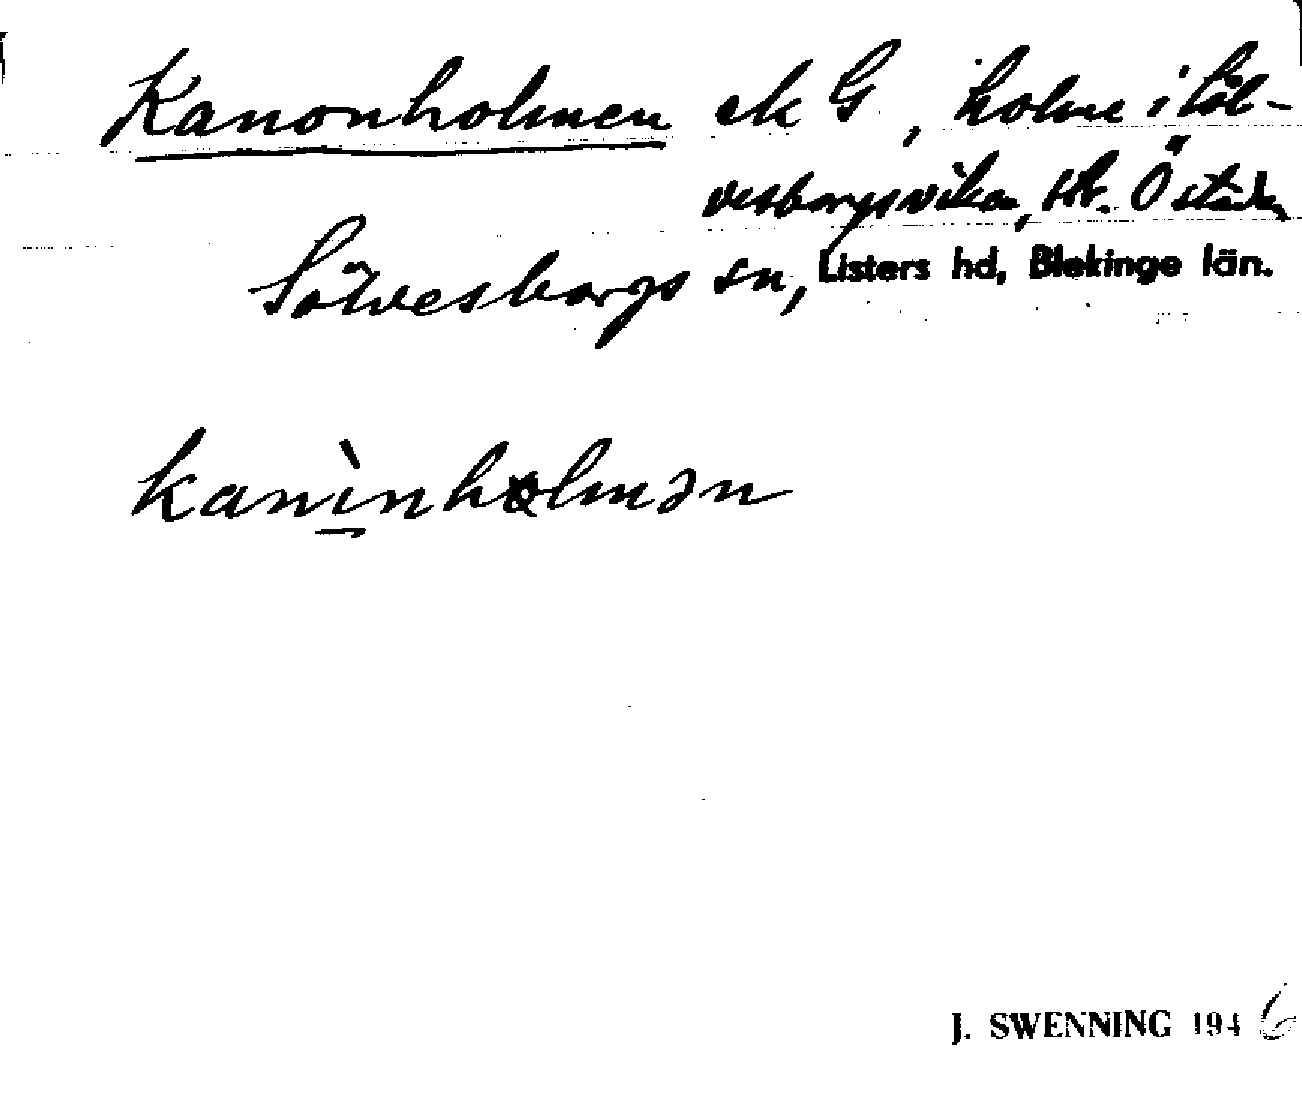 Kanonholmen ek G, holme i Söl-
vesborgsviken,
Sölvesborgs sn, Listers hd, Blekinge län.
kanìnholmən
J. SWENNING 1946